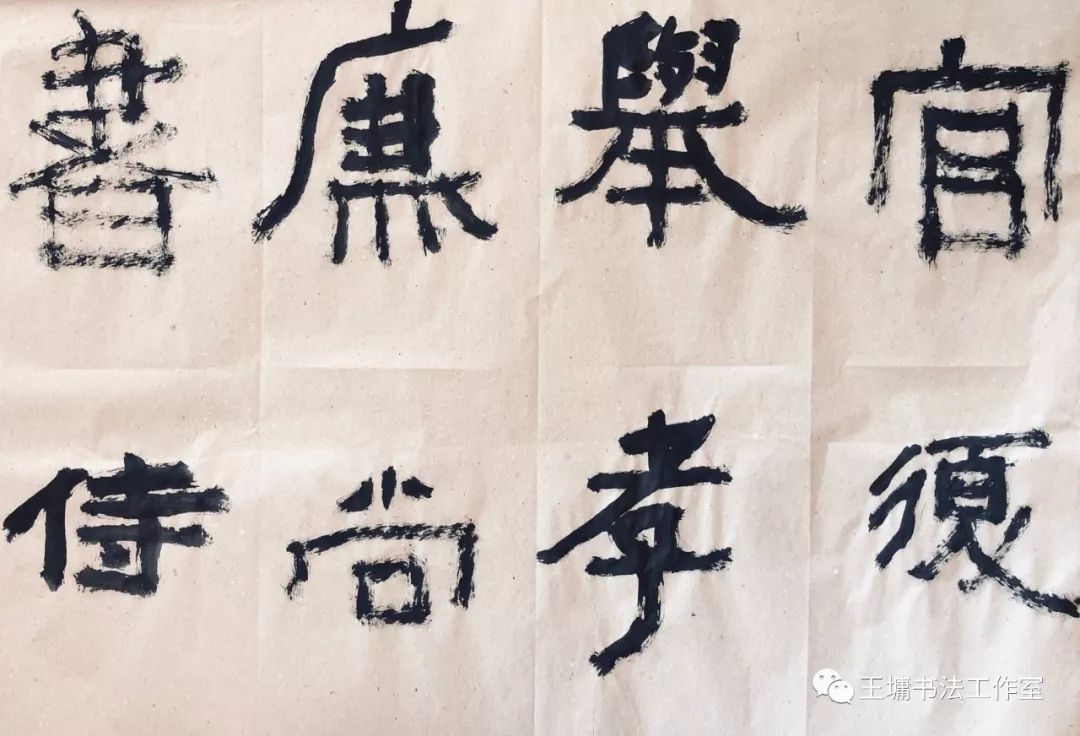 官須
舉孝
廉尚
書侍
王墉书法工作室